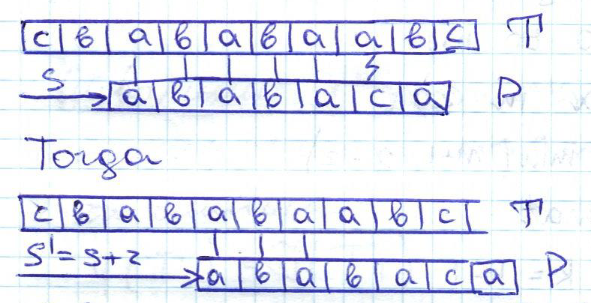 c в a в a в a a в c T
S a в a в a c a P
Тогда
c в a в a в a a в c T
S'=S+2 a в a в a c a P